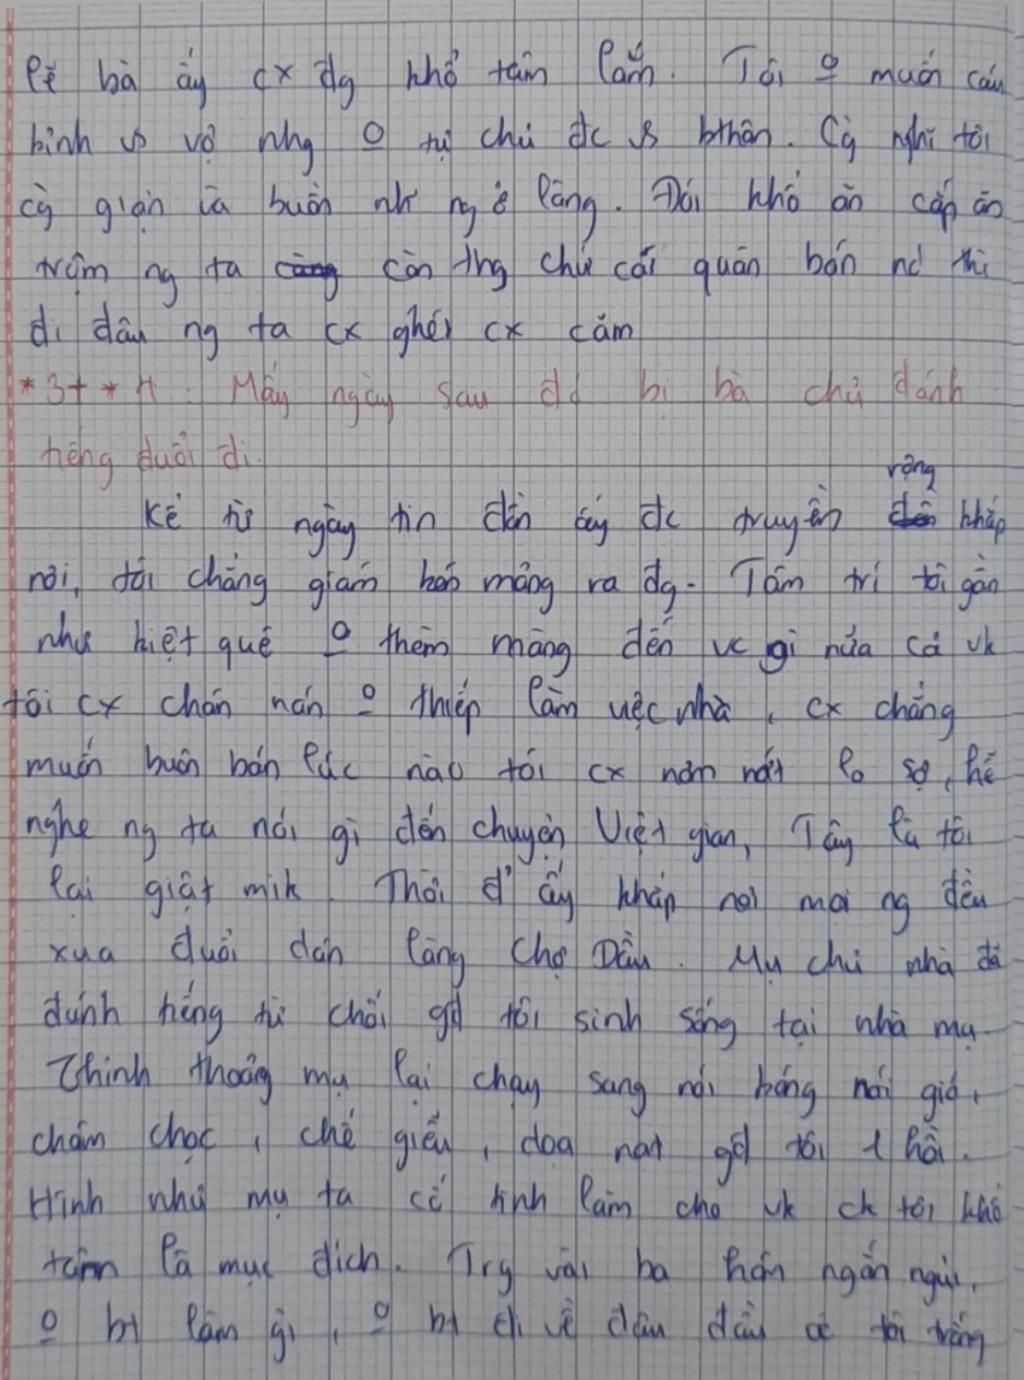 lẽ bà ấy cx đg khổ tâm lắm. Tôi 0 muốn cáu
bình vs vợ nhg 0 tự chủ đc vs bthân. Cg nghĩ tôi
cg giận và buồn nh ng ở làng. Đói khổ ăn cắp ăn
trộm ng ta còn thg chứ cái quân bán nc thì
đi đâu ng ta cx ghét cx cấm
* 3t * H : Mấy ngày sau đó bị bà chủ đánh
tiếng đuổi đi.
Kể từ ngày tin đồn ấy đc truyền rộng khắp
nơi, tôi chẳng giám màng ra đg. Tâm trí tôi gần
như kiệt quệ 0 thèm màng đến vc gì nữa cả vk
tôi cx chán nản 0 thiếp làm việc nhà, cx chẳng
muốn buôn bán lúc nào tôi cx nơm nớt lo sợ, hễ
nghe ng ta nói gì đến chuyện Việt gian, Tây là tôi
lại giật mik. Thời đ' ấy khắp nơi mọi ng đều
xua đuổi dân làng Chợ Dầu. Mụ chủ nhà đã
đánh tiếng từ chối gđ tôi sinh sống tại nhà mụ
Thỉnh thoảng mụ lại chạy sang nói bóng nói gió,
châm chọc, chế giễu, doạ nạt gđ tôi 1 hồi.
Hình như mụ ta cố tình làm cho vk ck tôi khổ
tâm là mục đích. Trg vài ba hôm ngắn ngủi,
0 bt làm gì, 0 bt đi về đâu đầu óc tôi trống